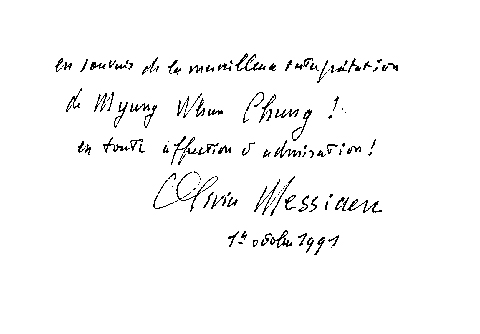 en souvenir de la merveilleuse interprétation
de Myung Whun Chung !
en toute affection & admiration !
Olivier Messiaen
1er octobre 1991